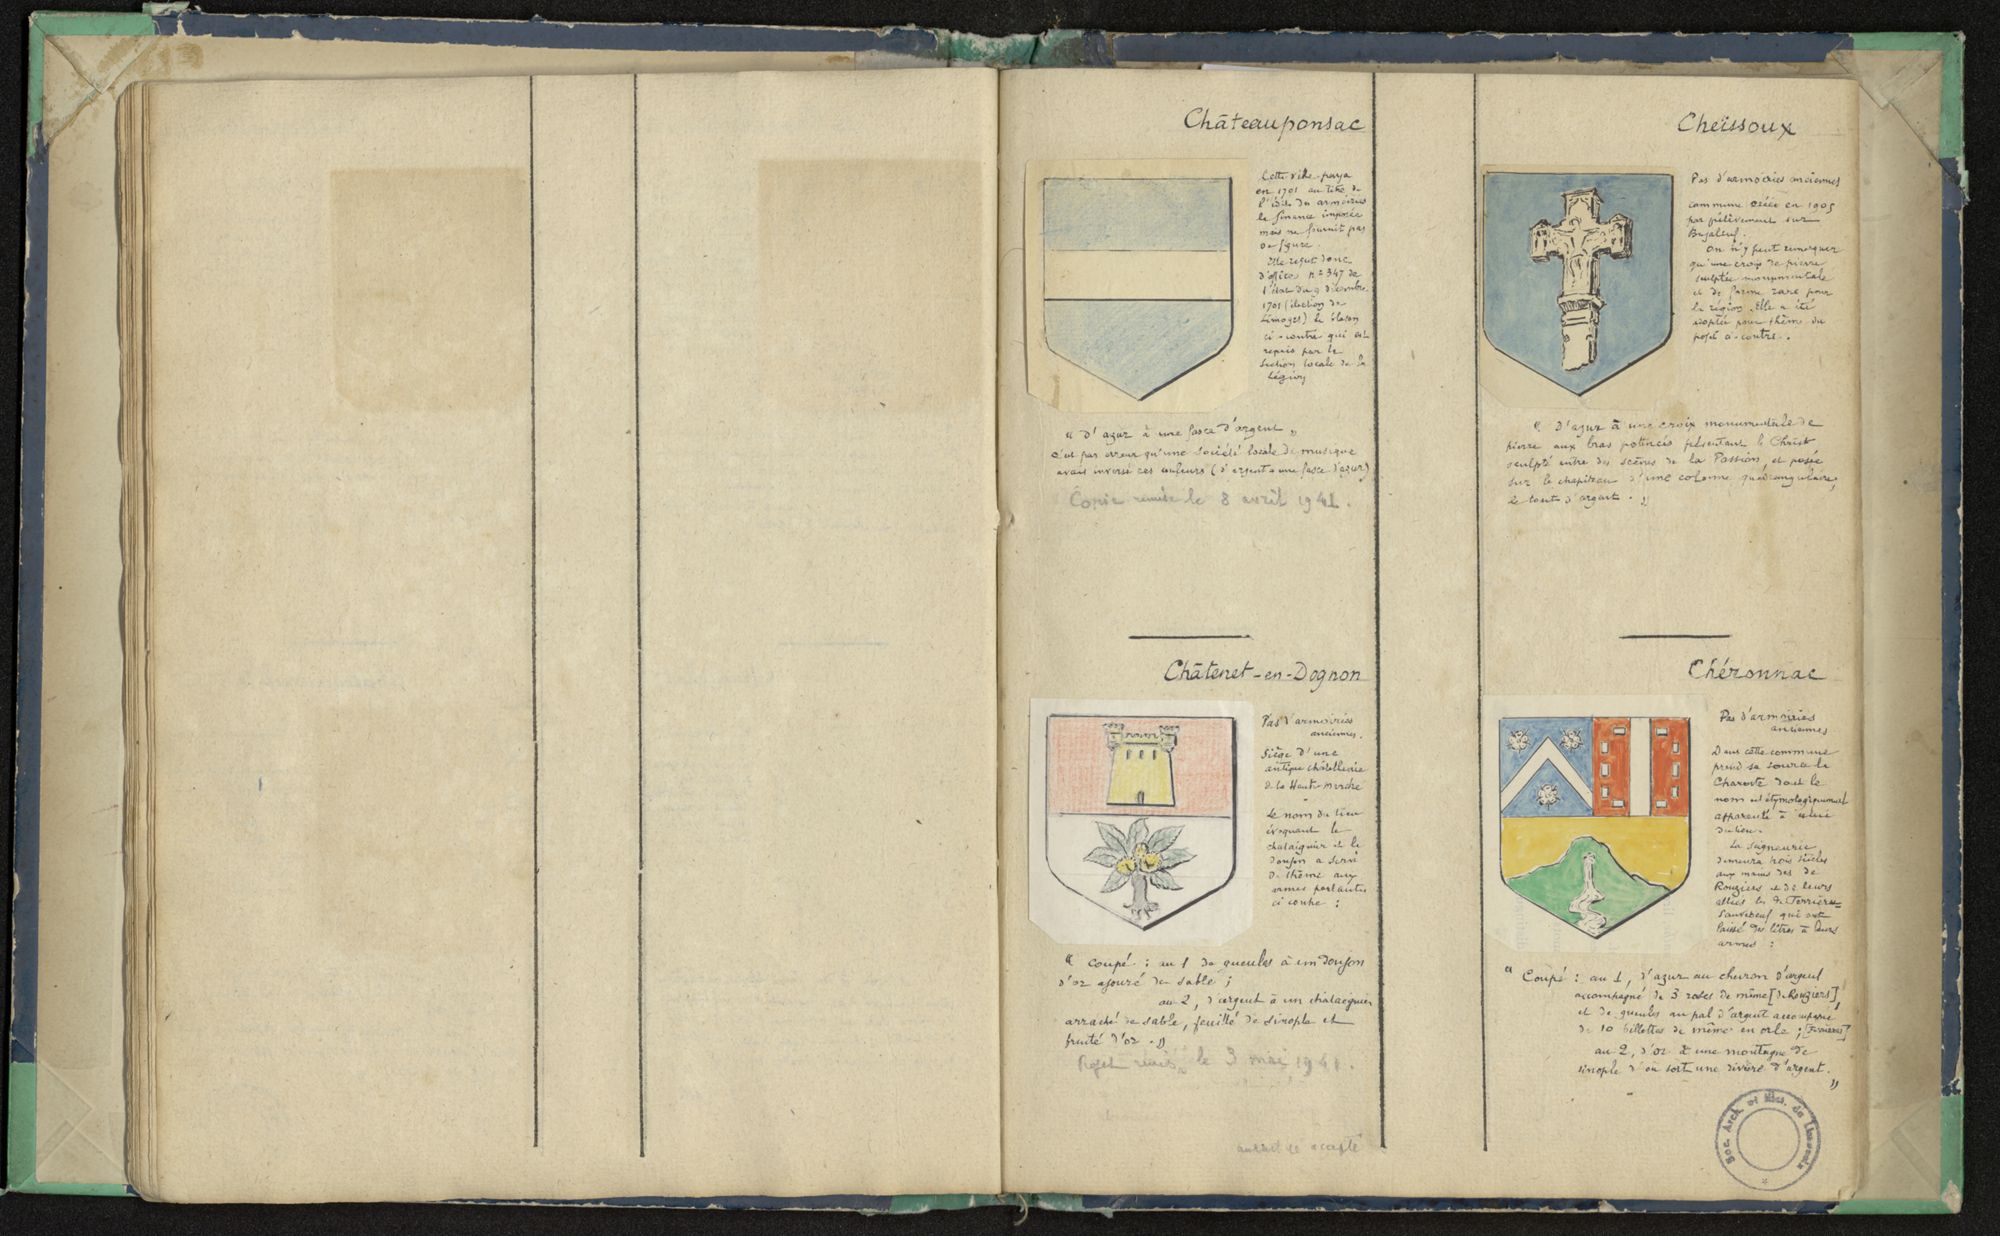 Châteauponsac
Cette ville paya
en 1701 au titre de
l'édit des armoiries
la finance imposée
mais ne fournit pas
de figure.
Elle reçut donc
d'office, n° 347 de
l'état du 9 décembre
1701 (élection de
Limoges) le blason
ci-contre qui est
repris par la
section locale de la
Légion
« D'azur à une fasce d'argent »
c'est par erreur qu'une société locale de musique
avait inversé ces couleurs (d'argent à une fasce d'azur)
Copie remise le 8 avril 1941.
Châtenet-en-Dognon
Pas d'armoiries
anciennes.
Siège d'une
antique châtellenie
de la Haute-Marche
Le nom du lieu
évoquant le
chataignier et le
donjon a servi
de thème aux
armes parlantes
ci contre :
« Coupé : au 1 de gueules à un donjon
d'or ajouré de sable ;
au 2, d'argent à un chataignier
arraché de sable, feuillé de sinople et
fruité d'or. »
Projet remis le 3 mai 1941.
accepté
Cheissoux
Pas d'armoiries anciennes
commune créée en 1905
par prélèvement sur
Bujaleuf.
On n'y peut remarquer
qu'une croix de pierre
sculptée monumentale
et de forme rare pour
la région. Elle a été
adoptée pour thème du
projet ci-contre.
« D'azur à une croix monumentale de
pierre aux bras potencés présentant le Christ
sculpté entre des scènes de la Passion, et posée
sur le chapiteau d'une colonne quadrangulaire,
le tout d'argent. »
Chéronnac
Pas d'armoiries
anciennes
Dans cette commune
prend sa source la
Charente dont le
nom est étymologiquement
apparenté à celui
du lieu.
La seigneurie
demeura trois siècles
aux mains des de
Rouziers et de leurs
alliés les de Ferrières-
Sauvebeuf qui ont
laissé des litres à leurs
armes :
« Coupé : au 1, d'azur au chevron d'argent
accompagné de 3 roses de même [de Rouziers]
et de gueules au pal d'argent accompagné
de 10 billettes de même en orle ; [Ferrières]
au 2, d'or à une montagne de
sinople d'où sort une rivière d'argent.
»
Soc. Arch. et Hist. du Limousin